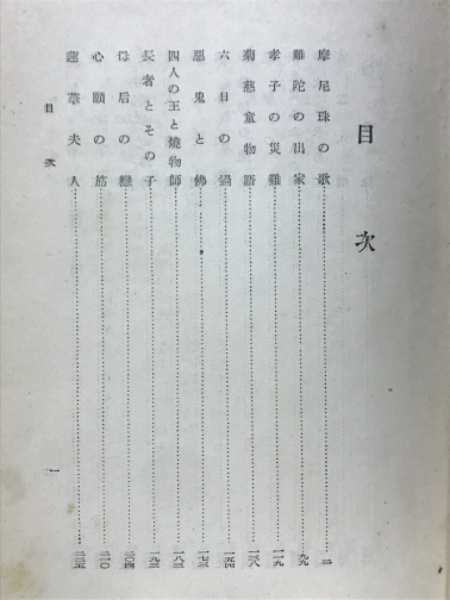 目次
摩尼珠の歌……一
難陀の出家……九九
孝子の災難……一一九
菊慈童物語……一三八
六日の禍……一五四
惡鬼と佛……一七三
四人の王と燒物師……一八三
長者とその子……一九三
母后の戀……二〇四
心願の筋……二一〇
蓮華夫人……二三五
目次
一